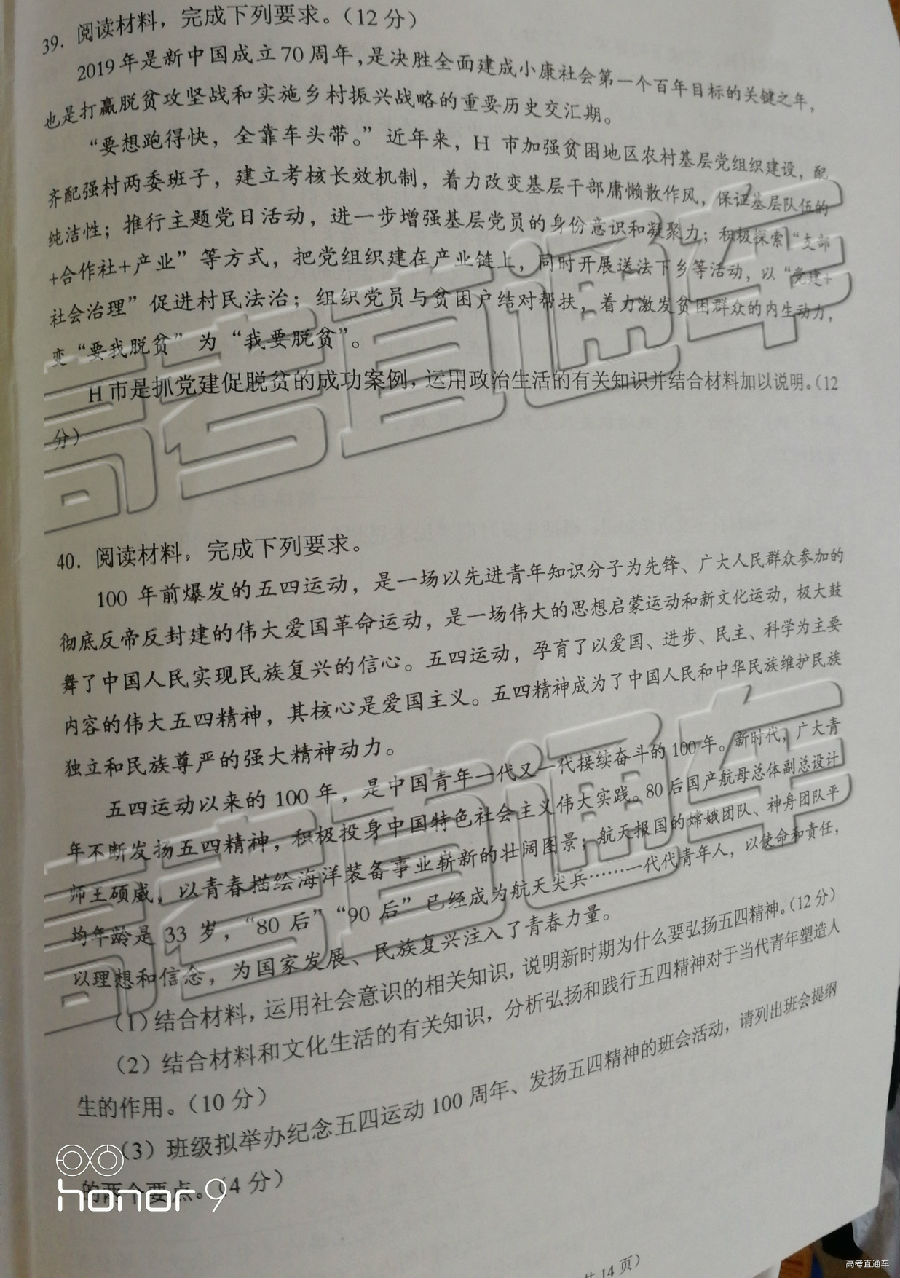 39. 阅读材料，完成下列要求。（12分）
2019年是新中国成立70周年，是决胜全面建成小康社会第一个百年目标的关键之年，
也是打赢脱贫攻坚战和实施乡村振兴战略的重要历史交汇期。
“要想跑得快，全靠车头带。”近年来，H 市加强贫困地区农村基层党组织建设，配
齐配强村两委班子，建立考核长效机制，着力改变基层干部庸懒散作风，保证基层队伍的
纯洁性；推行主题党日活动，进一步增强基层党员的身份意识和凝聚力；积极探索“支部
+合作社+产业”等方式，把党组织建在产业链上，同时开展送法下乡等活动，以“党建+
社会治理”促进村民法治；组织党员与贫困户结对帮扶，着力激发贫困群众的内生动力，
变“要我脱贫”为“我要脱贫”。
H市是抓党建促脱贫的成功案例，运用政治生活的有关知识并结合材料加以说明。（12
分）
40. 阅读材料，完成下列要求。
100 年前爆发的五四运动，是一场以先进青年知识分子为先锋、广大人民群众参加的
彻底反帝反封建的伟大爱国革命运动，是一场伟大的思想启蒙运动和新文化运动，极大鼓
舞了中国人民实现民族复兴的信心。五四运动，孕育了以爱国、进步、民主、科学为主要
内容的伟大五四精神，其核心是爱国主义。五四精神成为了中国人民和中华民族维护民族
独立和民族尊严的强大精神动力。
五四运动以来的 100 年，是中国青年一代又一代接续奋斗的100年。新时代，广大青
年不断发扬五四精神，积极投身中国特色社会主义伟大实践。80后国产航母总体副总设计
师王硕威，以青春描绘海洋装备事业崭新的壮阔图景；航天报国的嫦娥团队、神舟团队平
均年龄是 33 岁，“80 后”“90 后”已经成为航天尖兵……一代代青年人，以使命和责任，
以理想和信念，为国家发展、民族复兴注入了青春力量。
（1）结合材料，运用社会意识的相关知识，说明新时期为什么要弘扬五四精神。（12分）
（2）结合材料和文化生活的有关知识，分析弘扬和践行五四精神对于当代青年塑造人
生的作用。（10 分）
（3）班级拟举办纪念五四运动 100 周年、发扬五四精神的班会活动，请列出班会提纲
的两个要点。（4 分）
共14页）
高考直通车
高考直通车
honor 9
高考直通车